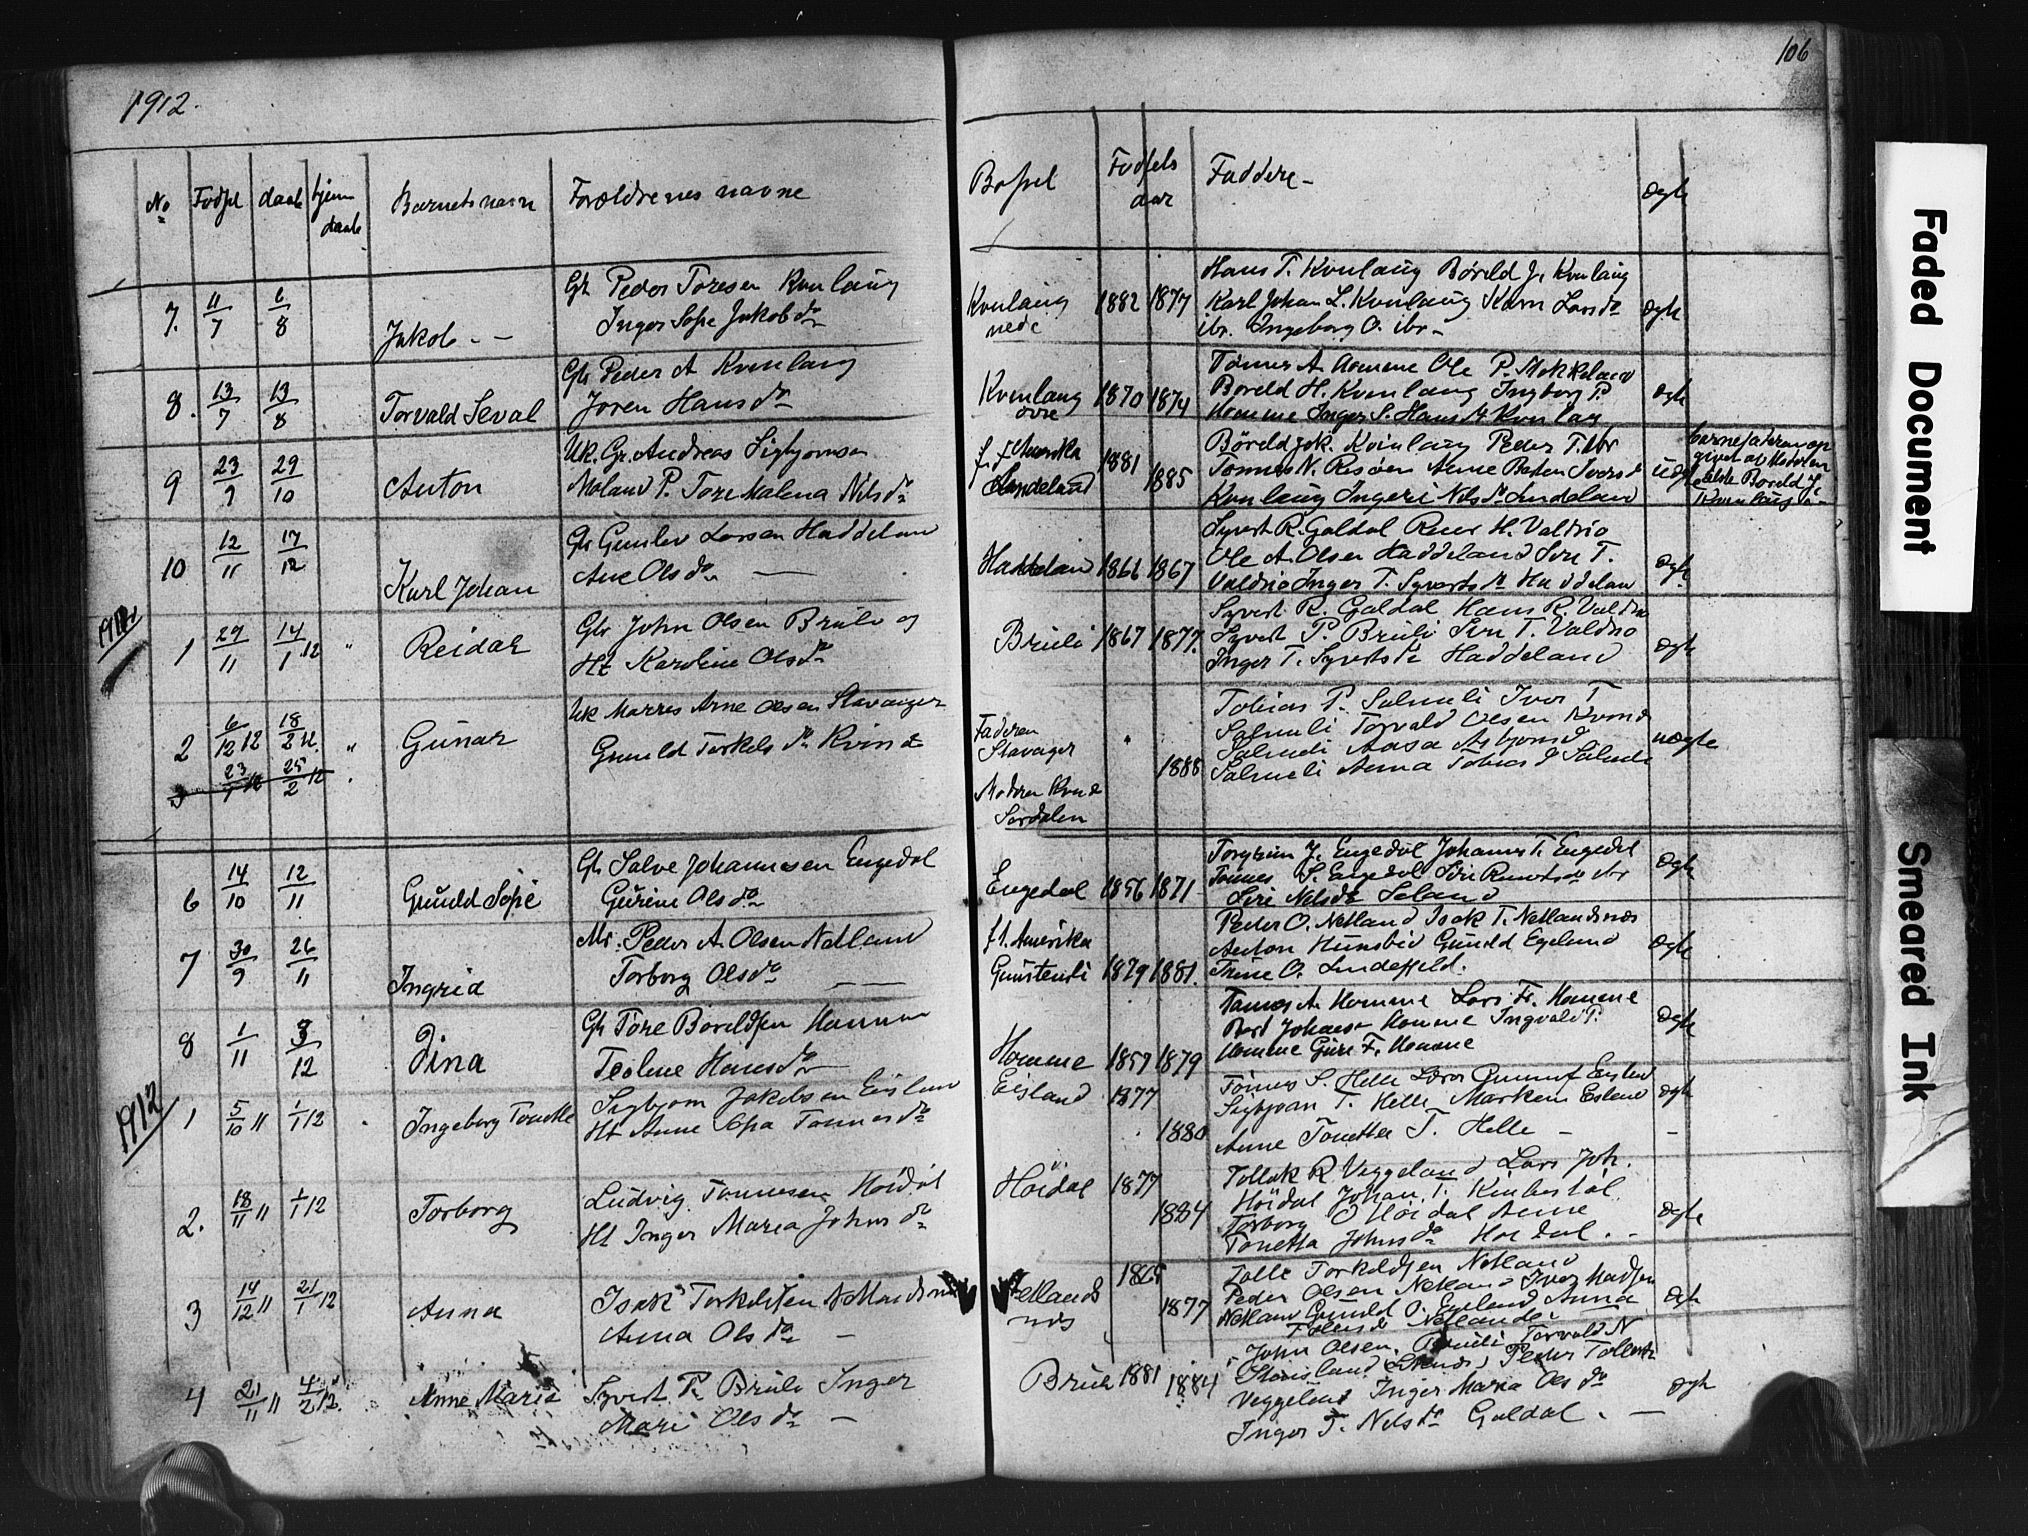 1912.
106
No Fødsel daab hjemme daab Barnets navn Forældrenes navne Bopel Fødsels aar Faddere - ægte
7. 11/7 6/8 Jakob - -
Gb Peder Toresen Kvnlaug
Inger Sofie Jakobsdr
Kvnlaug nede 1882 1877
Hans T. Kvnlaug Børild J. Kvnlaug
Karl Johan L. Kvnlaug Karn Larsdr
ibr. Ingeborg O. ibr - ægte
8. 13/7 13/8 Torvald Seval
Gb Peder A Kvnlaug
Joren Hansdr
Kvnlaug øvre 1870 1874
Tønnes A Homme Ole P. Stakkeland
Boreld H. Kvnlaug Ingborg P.
Homme Inger S. Hansdr Kvnlaug ægte
9 23/9 29/10 Anton
Uk. Gr. Andreas Sigbjornsen
Moland P. Tore Malena Nilsdr
f. f Amerika
Lindeland 1881 1885
Børeld Jok. Kvinlaug Peder T. ibr
Tønnes N. Risøen Anne Berten Iversd
Kvnlaug Ingeri Nilsdr Lindeland
uægt
barnefaderen op
givet af Moderen
Børeld J.
Kvnlaug
10 12/11 17/12 Karl Johan
Gb Gunlev Larsen Haddeland
Ane Olsdr -
Haddeland 1866 1867
Syvert R. Galdal Reier H. Valdrio
Ole A. Olsen Haddeland Siri T.
Valdrio Inger T. Syvertsdr Haddeland ægt.
1912
1 29/11 14/1 12 " Reidar
Gb John Olsen Brüli og
Ht Karoline Olsdr
Brüli 1867 1877.
Syvert R. Galdal Hans R. Valdrio
Syvert P. Brüli Siri T. Valdrio
Inger T. Syvertsdr Haddeland ægte
2 6/12 12 18/2 12. " Gunar
Uk Marres Arne Olsen Stavanger
Gunild Terkelsdr Kvinde
Faderen
Stavanger
Moderen Kvinde
Sordalen
1888
Tobias P. Salmeli Iver T
Salmeli Torvald Olsen Kvinde
Salmeli Aasa Asbjornsd
Salmeli Anna Tobiasd Salmeli uægte
3 23/1 12 25/2 12
6 14/10 12/11 Gunild Sofie
Gb Salve Johannesen Engedal
Gurine Olsdr
Engedal 1856 1871
Torgrim J. Engedal Johannes T. Engedal
Tønnes S. Engedal Siri Knutsdr ibr
Siri Nilsdr Seland ægte
7 30/9 26/11 Ingrid
Mr. Peder A. Olsen Netland
Torborg Olsdr - -
f. t. Amerika
Gunsteinli 1879 1881.
Peder O. Netland Isak T. Netlandsnes
Anton Hunsbed Gunild Egeland
Trine O. Lindefjeld. ægte
8 1/11 3/12 Dina
Gb Tore Børeldsen Homme
Teoline Hansdr
Homme 1857 1879
Tønnes A Homme Lars Fr. Homme
Berd Johanes Homme Ingvald P.
Homme Guri F. Homme ægte
1912
1 5/10 11 1/1 12 Ingeborg Tonette
Sigbjorn Jakobsen Eisland
Ht Anne Tonnesdr
Eisland 1877 1880
Tønnes S. Helle Lars Gunnuf Eisland
Sigbjorn T. Helle Marken Eisland
Anne Tonetta T. Helle - ægte
2. 18/11 11 1/1 12 Torborg
Ludvig Tonnesen Höidal
Ht Inger Maria Johnsdr
Höidal 1877 1884
Tollak R Veggeland Lars Joh.
Höidal Johan T. Kinbestöl
Torborg O Höidal Anne
Tonetta Johnsdr Hoidal. ægte
3 14/12 11 21/1 12 Anna
Isak Torkeldsen Netlandsnes
Anna Olsdr -
Netlands nes 1865 1877
Tolle Torkeldsen Netland
Peder Olsen Netland Iver Madsen
Netland Gunild O. Egeland Anna ægte
4 21/11 11 4/2 12. Anne Maria
Syvert P. Brüli Inger
Mari Olsdr -
Brüli 1881 1884
John Olsen Brüli Torvald N
Peder Tollaks
Veggeland Inger Maria Olsdr
Inger T. Nilsdr Galdal. - ægte
Faded Document
Smeared Ink